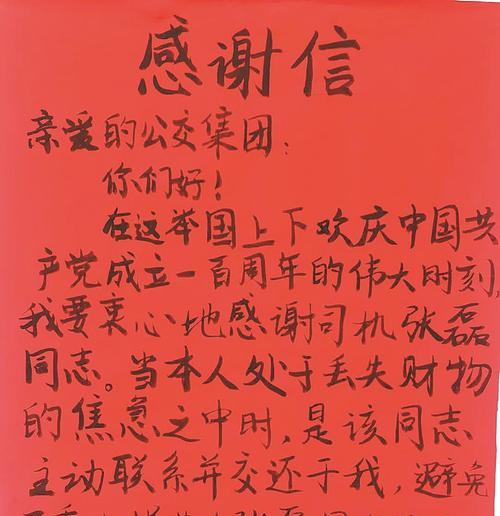 感谢信
亲爱的公交集团：
你们好！
在这举国上下欢庆中国共
产党成立一百周年的伟大时刻，
我要衷心地感谢司机张磊
同志。当本人处于丢失财物
的焦急之中时，是该同志
主动联系并交还于我，避免